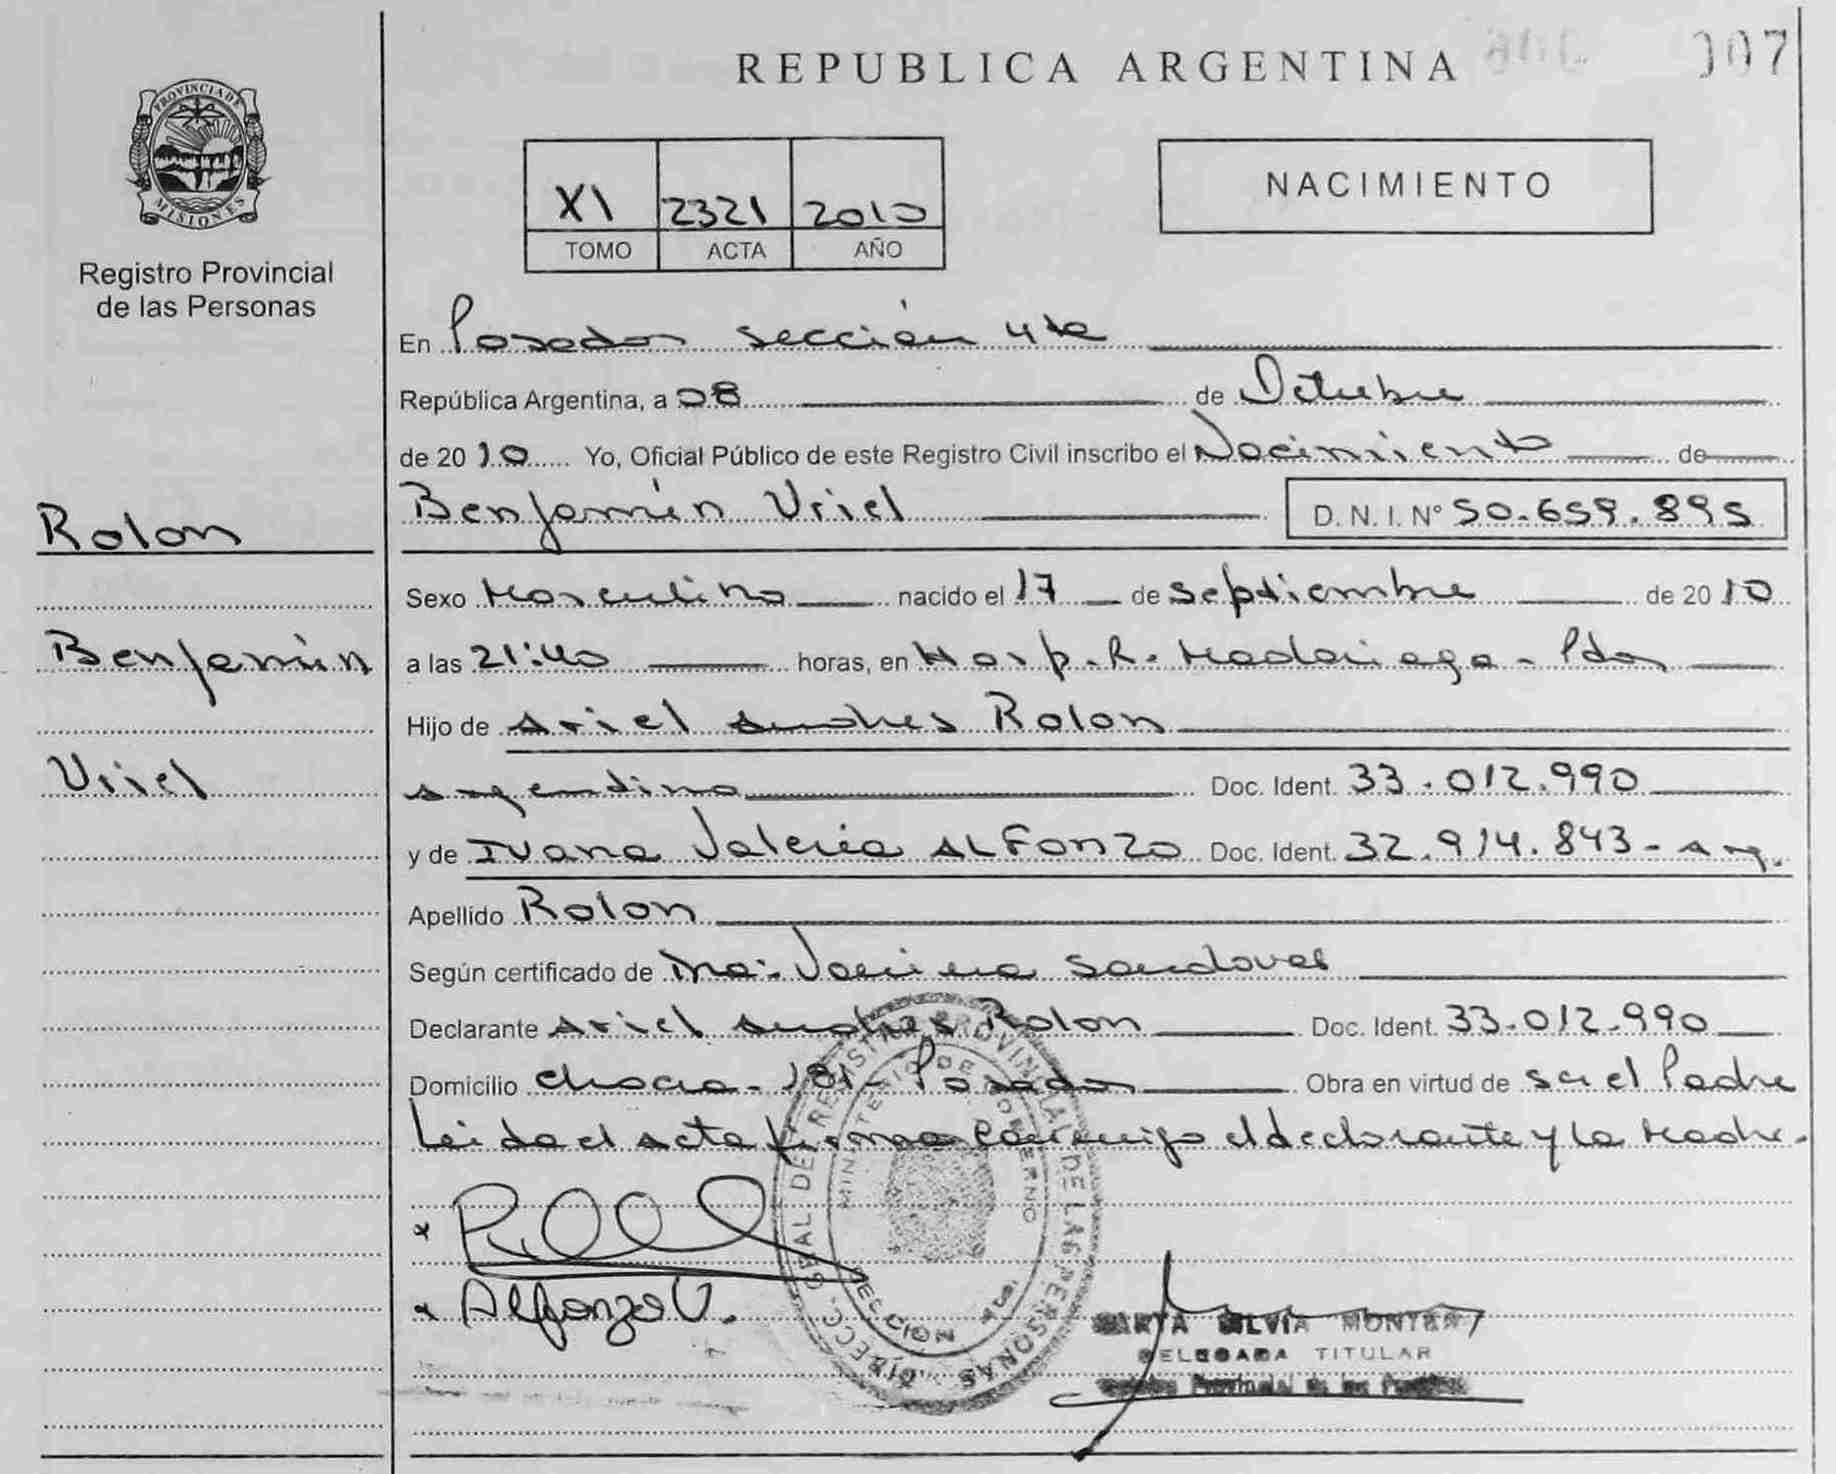 REPUBLICA ARGENTINA
007
PROVINCIA DE
MISIONES
Registro Provincial
de las Personas
XI 2321 2010
TOMO ACTA AÑO
NACIMIENTO
En Posadas sección 4ta
República Argentina, a 08 de Octubre
de 2010 Yo, Oficial Público de este Registro Civil inscribo el Nacimiento de
Rolon
Benjamín Uriel D. N. I. N° 50.659.895
Sexo Masculino nacido el 17 de Septiembre de 2010
Benjamín
a las 21:40 horas, en Hosp. R. Madariaga - Pdas
Hijo de Ariel Andres Rolon
Uriel
argentino Doc. Ident. 33.012.990
y de Ivana Valeria ALFONZO Doc. Ident. 32.914.843 - arg.
Apellido Rolon
Según certificado de Dra: Sandoval
Declarante Ariel Andres Rolon Doc. Ident. 33.012.990
Domicilio chacra - 181 - Posadas Obra en virtud de ser el Padre
Leida el acta firman conmigo el declarante y la Madre.
Alfonzo V.
DIRECC. GRAL DEL REGISTRO PROVINCIAL DE LAS PERSONAS
MINISTERIO DE GOBIERNO
SECCION 4ta.
SILVIA
DELEGADA TITULAR
Registro Provincial de las Personas